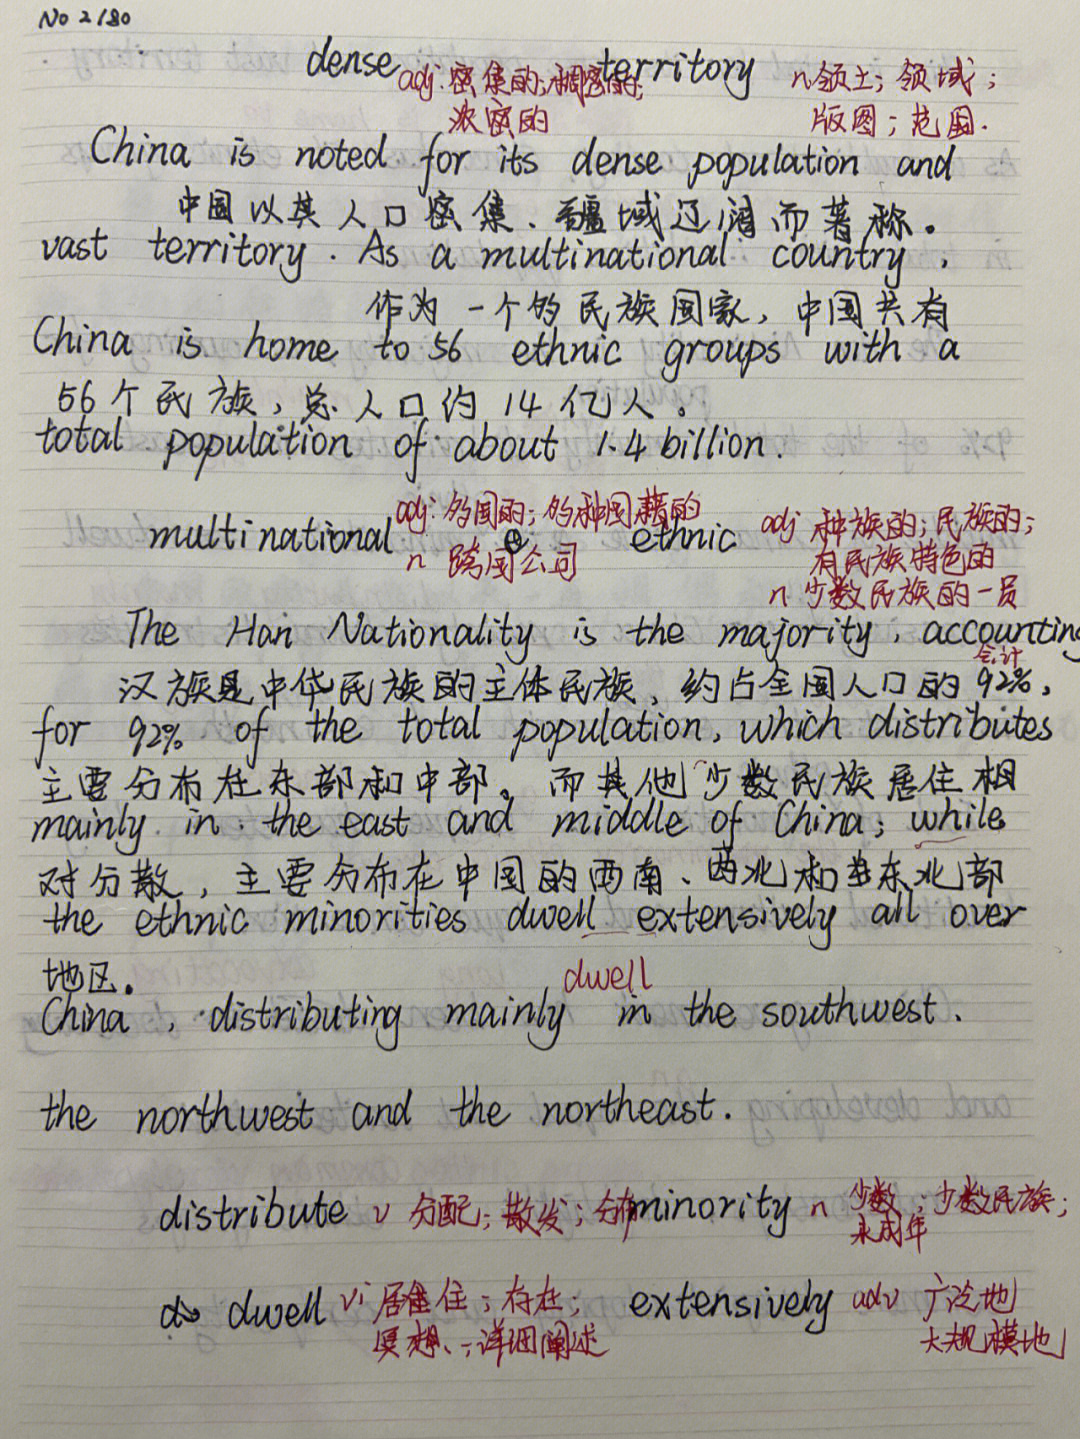 No 2/80
dense adj. 密集的; 稠密的; territory n 领土; 领域;
浓密的 版图; 范围.
China is noted for its dense population and
中国以其人口密集、疆域辽阔而著称。
vast territory. As a multinational country,
作为一个多民族国家, 中国共有
China is home to 56 ethnic groups with a
56个民族, 总人口约14亿人。
total population of about 1.4 billion.
adj. 多国的; 多种国籍的
multinational ethnic adj 种族的; 民族的;
n 跨国公司 有民族特色的
n 少数民族的一员
The Han Nationality is the majority, accounting
会计
汉族是中华民族的主体民族, 约占全国人口的92%,
for 92% of the total population, which distributes
主要分布在东部和中部。而其他少数民族居住相
mainly in the east and middle of China; while
对分散, 主要分布在中国的西南、西北和东北部
the ethnic minorities dwell extensively all over
地区.
dwell
China, distributing mainly in the southwest.
the northwest and the northeast.
distribute v 分配; 散发; 分布 minority n 少数; 少数民族;
未成年
dwell vi 居住; 存在; extensively adv 广泛地
冥想、; 详细阐述 大规模地